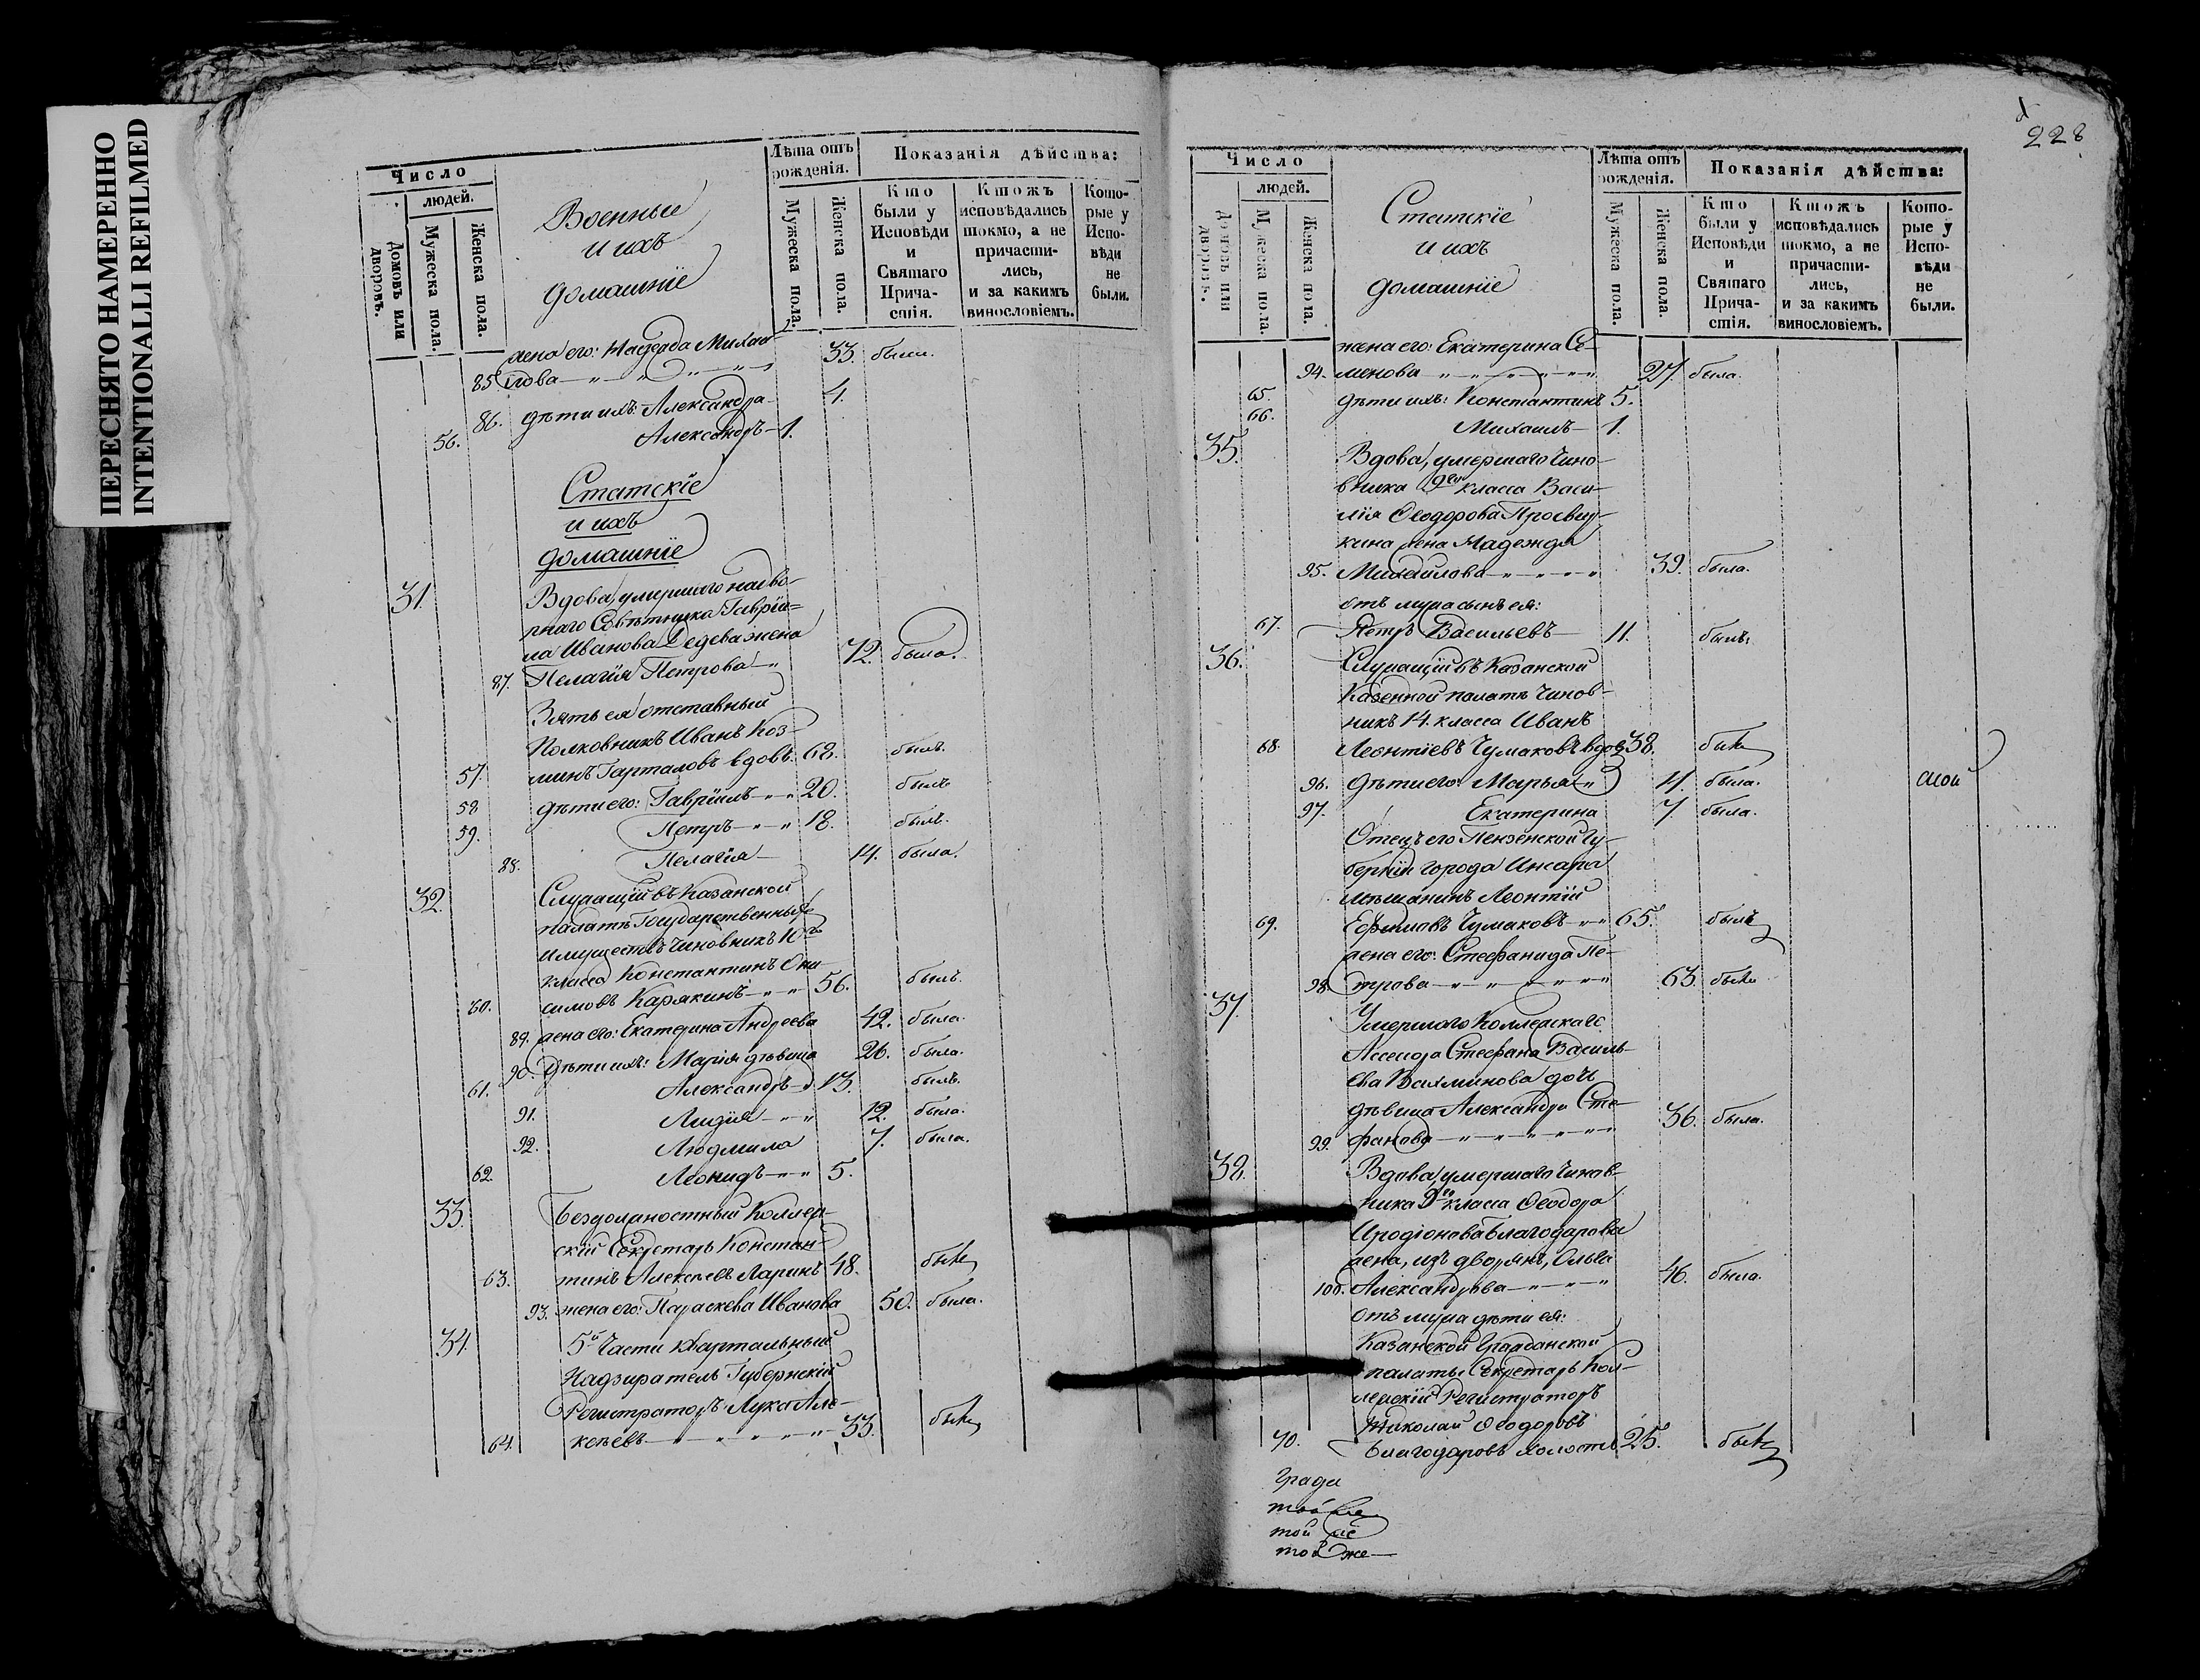 ПЕРЕСНЯТО НАМЕРЕННО
INTENTIONALLI REFILMED
Число
людей.
Домовъ или дворовъ.
Мужеска пола.
Женска пола.
Военные
и ихъ
домашніе
Лѣта отъ рожденія.
Мужеска пола.
Женска пола.
Показанія дѣйства:
Кто были у Исповѣди и Святаго Причастія.
Ктожъ исповѣдались токмо, а не причастились, и за какимъ винословіемъ.
Которые у Исповѣди не были.
жена его: Надежда Михаи-
85. лова 33. были.
86. дѣти ихъ: Александра 4.
56. Александръ 1.
Статскіе
и ихъ
домашніе
31. Вдова, умершаго надво-
рнаго Совѣтника Гаврiи-
ла Иванова жена
87. Пелагія Петрова 72. была.
Зять ея отставный
Полковникъ Иванъ Коз-
57. минъ Гарталовъ вдовъ. 68. былъ.
58 дѣти его: Гавріилъ 20. былъ
59. Петръ 18. былъ.
88. Пелагія 14. была.
32. Служащій въ Казанской
палатѣ Государственныхъ
имуществъ чиновникъ 10го
класса Константинъ Они-
60. симовъ Карякинъ 56. былъ.
89. жена его: Екатерина Андреева 42. была.
90. Дѣти ихъ: Марія дѣвица 26. была.
61. Александръ 13. былъ.
91. Лидія 12. была.
92. Людмила 7. была.
62. Леонидъ 5.
33. Бездолжностный Коллеж-
скій Секретарь Констан-
63. тинъ Алексѣевъ Ларинъ 48. былъ
93. жена его: Параскева Иванова 50. была.
34. 5й Части квартальный
Надзиратель Губернскій
Регистраторъ Лука Але-
64. ксѣевъ 33. былъ
228
Число
людей.
Домовъ или дворовъ.
Мужеска пола.
Женска пола.
Статскіе
и ихъ
домашніе
Лѣта отъ рожденія.
Мужеска пола.
Женска пола.
Показанія дѣйства:
Кто были у Исповѣди и Святаго Причастія.
Ктожъ исповѣдались токмо, а не причастились, и за какимъ винословіемъ.
Которые у Исповѣди не были.
жена его: Екатерина Се-
94. менова 27. была.
65. дѣти ихъ: Константинъ 5.
66. Михаилъ 1.
35. Вдова, умершаго чино-
вника 9го класса Васи-
лія Ѳеодорова Просвир-
кина жена Надежда
95. Михайлова 39. была.
отъ мужа сынъ ея:
67. Петръ Васильевъ 11. былъ.
36. Служащій въ Казанской
Казенной палатѣ чинов-
никъ 14. класса Иванъ
68. Леонтіевъ Чумаковъ вдов. 38. былъ
96. дѣти его: Марья 11. была.
97. Екатерина 7. была.
Отецъ его Пензенской Гу-
берніи города Инсара
мѣщанинъ Леонтій
69. Ефимовъ Чумаковъ 65. былъ
жена его: Стефанида Пе-
98. трова 63. была
37. Умершаго Коллежскаго
Ассесора Стефана Василь-
ева дочь
дѣвица Александра Сте-
99. фанова 36. была.
38. Вдова, умершаго чинов-
ника 9го класса Ѳеодора
Иродіонова Благодарова
жена, изъ дворянъ, Ольга
100. Александрова 46. была.
отъ мужа дѣти ея:
Казанской Гражданской
палаты Секретарь Кол-
лежскій Регистраторъ
Николай Ѳеодоровъ
70. Благодаровъ холостъ 25. былъ
Гради
той
той же
той же